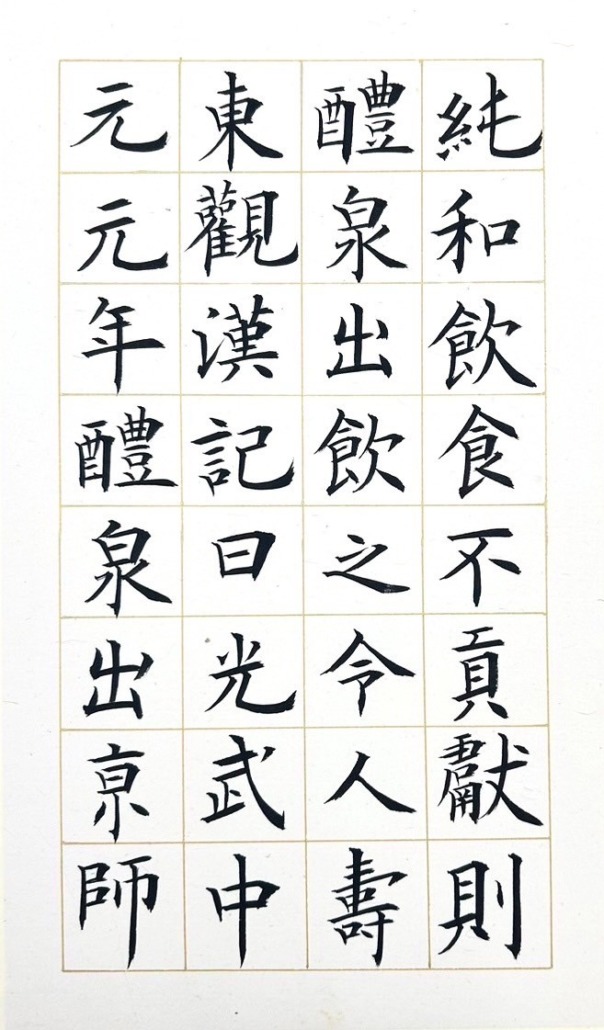 純和飲食不貢獻則
醴泉出飲之令人壽
東觀漢記曰光武中
元元年醴泉出京師